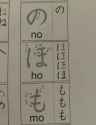 の の
no
ほ にははほ
ho
も ももも
mo